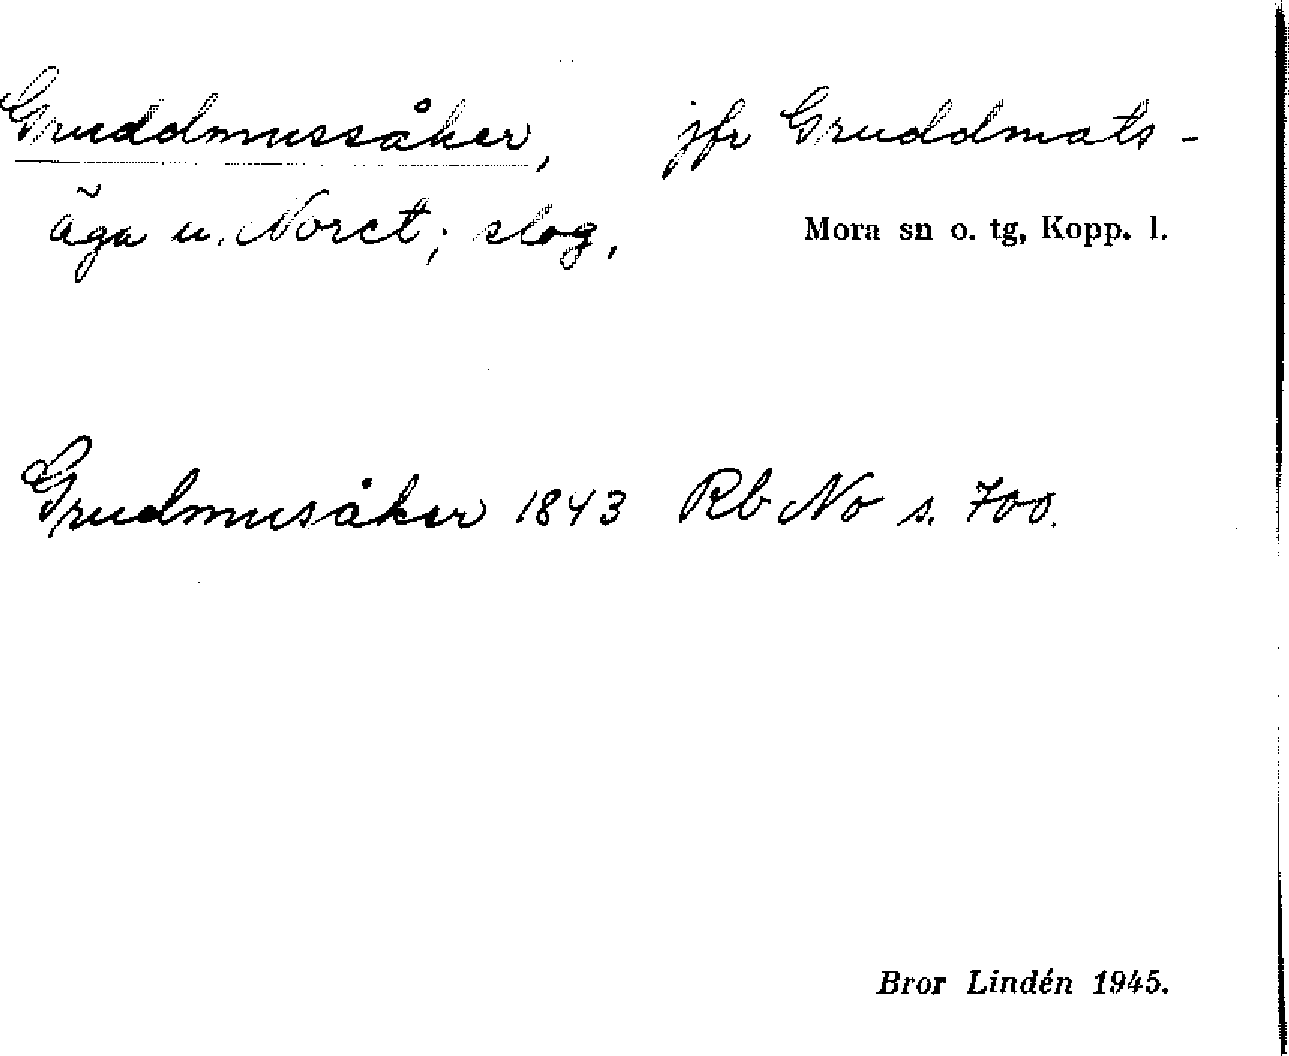 Gruddmussåker, jfr Gruddmats-
äga u. Noret; slog, Mora sn o. tg, Kopp. l.
Grudmusåker 1843 Rb No s. 700.
Bror Lindén 1945.